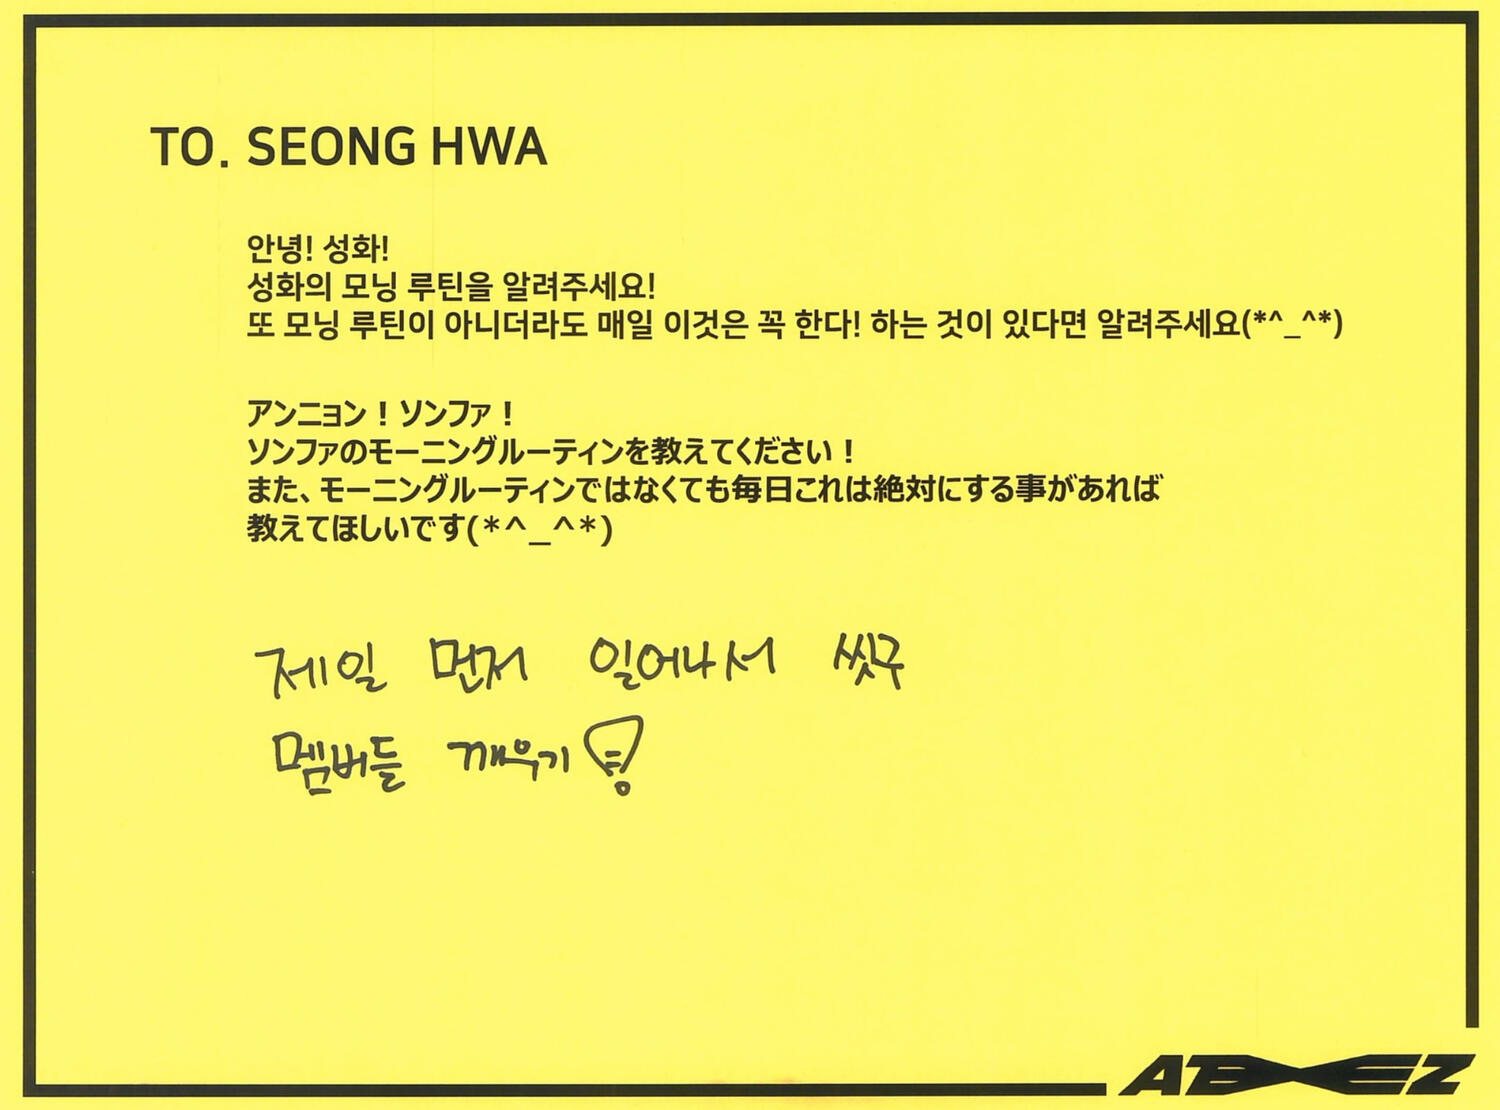 TO. SEONG HWA
안녕! 성화!
성화의 모닝 루틴을 알려주세요!
또 모닝 루틴이 아니더라도 매일 이것은 꼭 한다! 하는 것이 있다면 알려주세요(*^_^*)
アンニョン！ソンファ！
ソンファのモーニングルーティンを教えてください！
また、モーニングルーティンではなくても毎日これは絶対にする事があれば
教えてほしいです(*^_^*)
제일 먼저 일어나서 씻구
멤버들 깨우기!